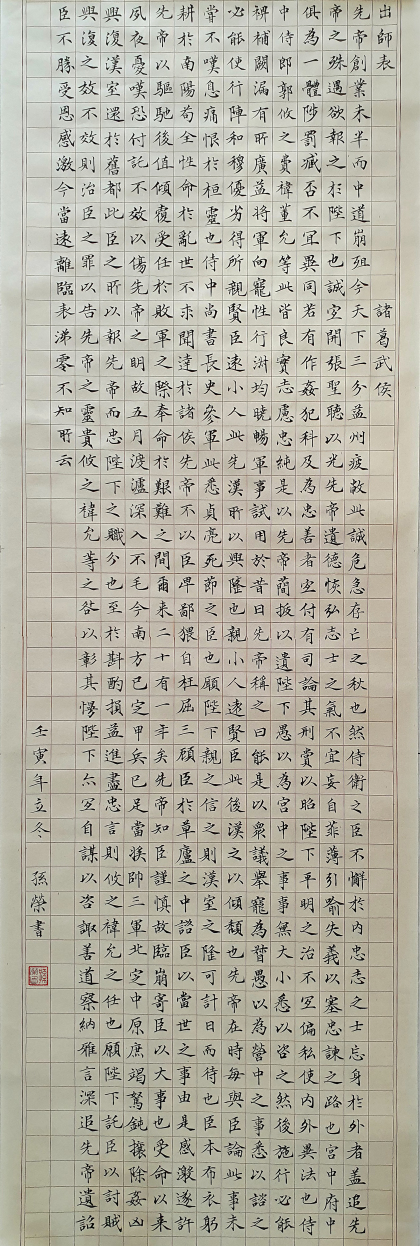 出師表 諸葛武侯
先帝創業未半而中道崩殂今天下三分益州疲敝此誠危急存亡之秋也然侍衛之臣不懈於內忠志之士忘身於外者蓋追先
帝之殊遇欲報之於陛下也誠宜開張聖聽以光先帝遺德恢弘志士之氣不宜妄自菲薄引喻失義以塞忠諫之路也宮中府中
俱為一體陟罰臧否不宜異同若有作姦犯科及為忠善者宜付有司論其刑賞以昭陛下平明之治不宜偏私使內外異法也侍
中侍郎郭攸之費禕董允等此皆良實志慮忠純是以先帝簡拔以遺陛下愚以為宮中之事事無大小悉以咨之然後施行必能
裨補闕漏有所廣益將軍向寵性行淑均曉暢軍事試用於昔日先帝稱之曰能是以眾議舉寵為督愚以為營中之事悉以諮之
必能使行陣和穆優劣得所親賢臣遠小人此先漢所以興隆也親小人遠賢臣此後漢之以傾頹也先帝在時每與臣論此事未
嘗不嘆息痛恨於桓靈也侍中尚書長史參軍此悉貞亮死節之臣也願陛下親之信之則漢室之隆可計日而待也臣本布衣躬
耕於南陽苟全性命於亂世不求聞達於諸侯先帝不以臣卑鄙猥自枉屈三顧臣於草廬之中諮臣以當世之事由是感激遂許
先帝以驅馳後值傾覆受任於敗軍之際奉命於艱難之間爾來二十有一年矣先帝知臣謹慎故臨崩寄臣以大事也受命以來
夙夜憂嘆恐付託不效以傷先帝之明故五月渡瀘深入不毛今南方已定甲兵已足當獎帥三軍北定中原庶竭駑鈍攘除姦凶
興復漢室還於舊都此臣之所以報先帝而忠陛下之職分也至於斟酌損益進盡忠言則攸之禕允之任也願陛下託臣以討賊
興復之效不效則治臣之罪以告先帝之靈責攸之禕允等之咎以彰其慢陛下亦宜自謀以咨諏善道察納雅言深追先帝遺詔
臣不勝受恩感激今當遠離臨表涕零不知所云
壬寅年立冬 孫榮書